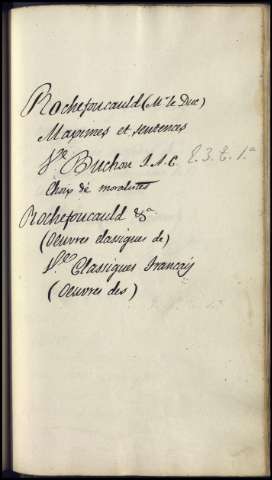 Rochefoucauld (Mr le Duc)
Maximes et sentences
Ve Buchon J.A.C. E. 3. t. 1a
Choix de moralistes
Rochefoucauld &a
(Oeuvres classiques de)
Ve Classiques Français
(Oeuvres des)